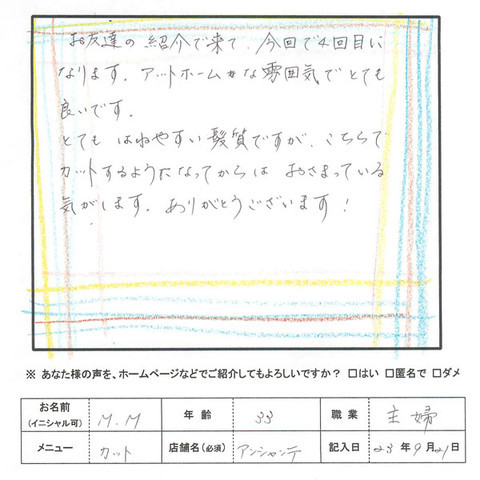 お友達の紹介で来て、今回で4回目に
なります。アットホームな雰囲気でとても
良いです。
とてもはねやすい髪質ですが、こちらで
カットするようになってからはおさまっている
気がします。ありがとうございます!
※ あなた様の声を、ホームページなどでご紹介してもよろしいですか? □はい □匿名で □ダメ
お名前(イニシャル可) M.M 年齢 33 職業 主婦
メニュー カット 店舗名(必須) アンシャンテ 記入日 23年9月21日